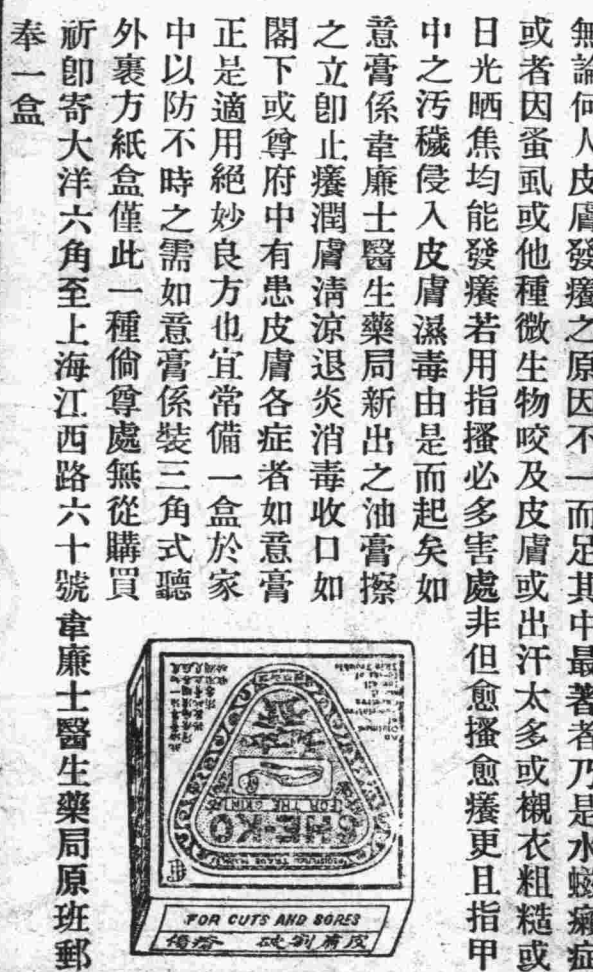 無論何人皮膚發癢之原因不一而足其中最著者乃是水蟣癩症
或者因蚤虱或他種微生物咬及皮膚或出汗太多或襯衣粗糙或
日光晒焦均能發癢若用指搔必多害處非但愈搔愈癢更且指甲
中之汚穢侵入皮膚濕毒由是而起矣如
意膏係韋廉士醫生藥局新出之油膏擦
之立卽止癢潤膚淸涼退炎消毒收口如
閣下或尊府中有患皮膚各症者如意膏
正是適用絕妙良方也宜常備一盒於家
中以防不時之需如意膏係裝三角式聽
外裹方紙盒僅此一種倘尊處無從購買
祈卽寄大洋六角至上海江西路六十號韋廉士醫生藥局原班郵
奉一盒
SHE-KO
FOR THE SKIN
FOR CUTS AND SORES
皮膚割破 瘡傷